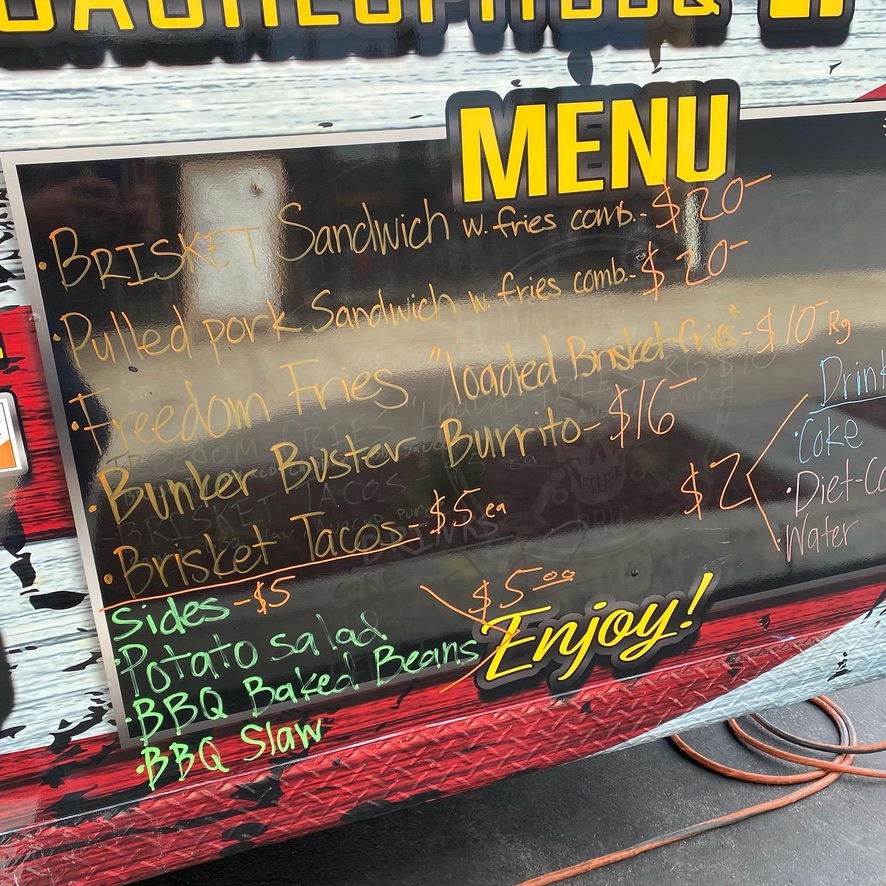 MENU
•BRISKET Sandwich w. fries comb.-$20-
•Pulled pork Sandwich w. fries comb.-$20-
•Freedom Fries "loaded Brisket fries"-$10- Rg
•Bunker Buster Burrito-$16-
•Brisket Tacos-$5 ea
Sides-$5
•Potato salad
•BBQ Baked Beans
•BBQ Slaw
$5.00
$2
•Coke
•Diet-Co
•Water
Enjoy!